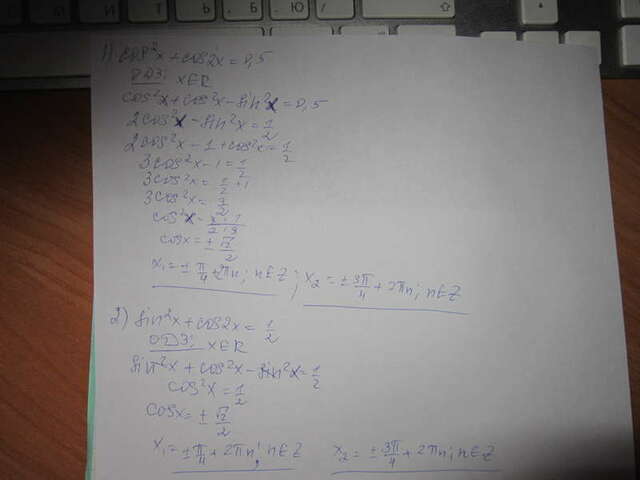 И Б Ю
1) cos²x + cos2x = 0,5
ОДЗ: x∈R
cos²x + cos²x - sin²x = 0,5
2cos²x - sin²x = 1/2
2cos²x - 1 + cos²x = 1/2
3cos²x - 1 = 1/2
3cos²x = 1/2 + 1
3cos²x = 3/2
cos²x = 3·1/2·3
cosx = ± √2/2
x₁ = ± π/4 + 2πn; n∈Z; x₂ = ± 3π/4 + 2πn; n∈Z
2) sin²x + cos2x = 1/2
ОДЗ: x∈R
sin²x + cos²x - sin²x = 1/2
cos²x = 1/2
cosx = ± √2/2
x₁ = ± π/4 + 2πn; n∈Z x₂ = ± 3π/4 + 2πn; n∈Z